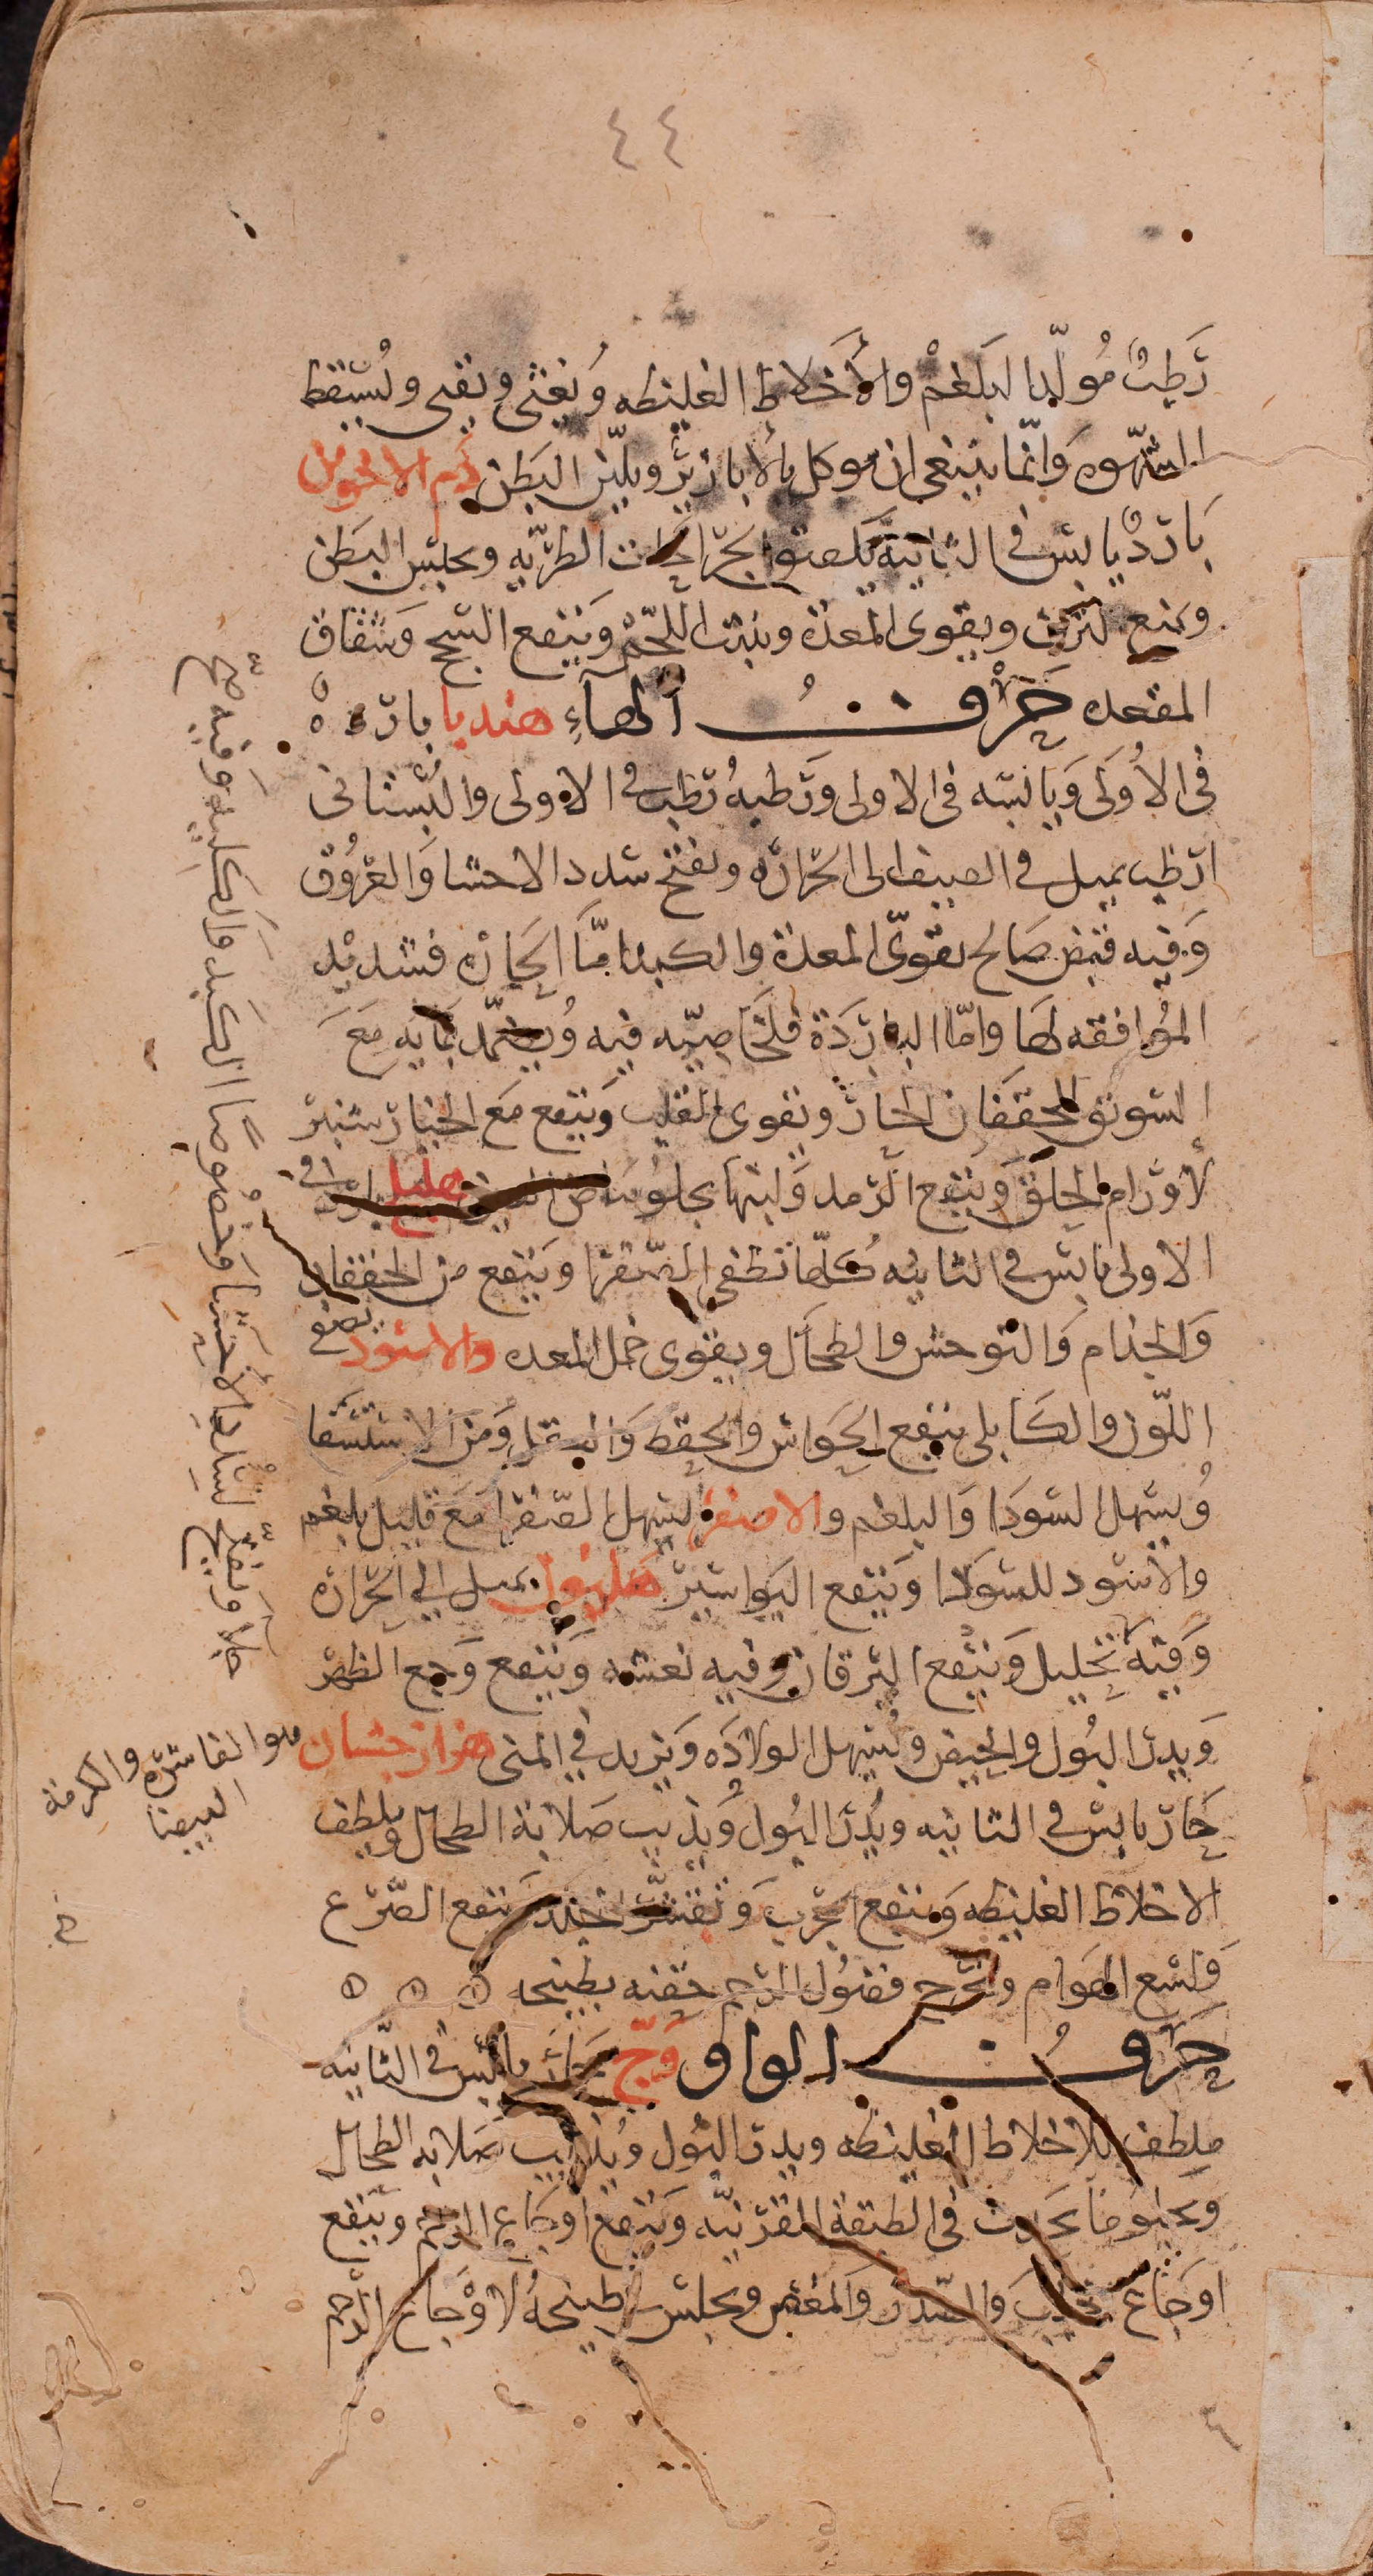 ٤٤
رَطِبٌ مُولّد البَلغمْ والأخَلاط الغليظه وُيغثى ويقى ويُسقط
الشهوه وَانّما ينبغى ان يوكل بالابازيرْ ويليّن البَطن دم الاخوين
بَاردٌ يابس فى الثانيَة يلصق الجرَاحَات الطرّيه ويحبس البَطن
ويمنع النزف ويقوى المعدَة وينبت اللحمْ وَينفع السَّحج وَشقاق
المقعده حَرْفُ الهآءِ هندبا بارده
فى الأولَى وَيَابسَه فى الاولى وَرَطبهُ رَطب فى الاولى والبُستانى
ارَطب يميل فى الصيف الى الحرَارَه ويفتح سدد الاحشا وَالعرُوق
وَفيه قبض صَالح يقوّى المعدَة والكبد امّا الحارَه فشديد
المُوافقه لها وامّا البارَدَة فلخَاصيّه فيه وُيضمّد بمَايه مَعَ
السويق للخفقان الحار ويقوى القلب وَينفع مَع الخيار شنبر
لأورَام الحلق وَينفع الرّمد وَلبنها يجلو بَياض العين هليلج بارد فى
الاولى يابس فى الثانيه كلها تطفى الصّفرا وَينفع من الخفقان
وَالجذام وَالتوحش والطحَال ويقوى خمل المعده والاسود يصفى
اللّون والكابلى ينفع الحَواس والحفظ وَالعقل وَمن الاستسقا
وُيسهل السّودَا وَالبلغم والاصفر يُسهل الصّفرا مَعَ قليل بلغم
والاسود للسّودَا وَينفع البَواسير هليون يميل الى الحرَارَه
وَفيه تحليل وَينفع اليرقان وفيه نعشه وَينفع وَجع الظهر
وَيدرّ البَول والحيض ويُسهل الولادَه وَيزيد فى المنى هزارجشان
حَار يابس فى الثانيه ويُدرّ البول وُيذيب صَلابة الطحال ويلطف
الاخلاط الغليظه وَينفع الجرَب وَتقشر الجلد وَينفع الصّرع
وَلسع الهوَام ويخرج فضول الرّحم حقنه بطبيخه ٥ ٥ ٥
حَرفُ الواو وَجّ حَار يابس فى الثّانيه
ملطف للاخلاط الغليظه ويدرّ البُول وُيذيب صَلابه الطحال
ويجلو مَا يحدث فى الطبقة القرَنيّه وَينفع اوجَاع الرحم وَينفع
اوجَاع الجنب وَالصّدر وَالمغص ويجلس فى طبيخهُ لاوْجَاع الرّحم
جلا وَيفتح لسُدد الأحشا وَخصُوصًا الكَبد وَالكليه وَفيه
هو الفاشرّه والكرمه
البيضا